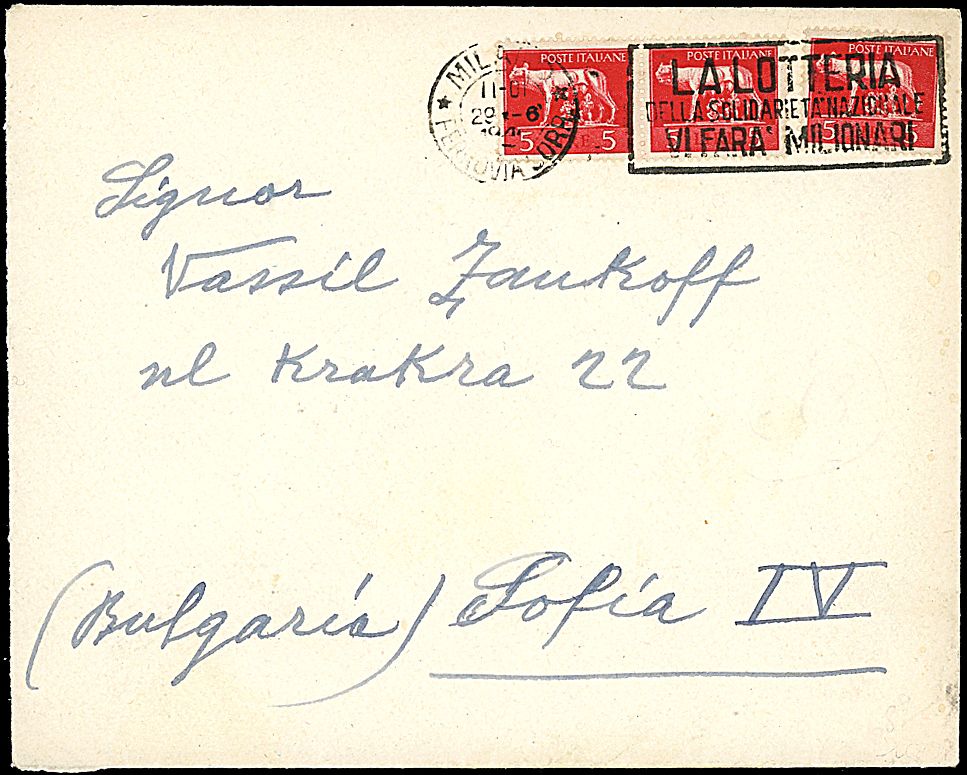 MILANO
11-
29 -6
FERROVIA CORR.
POSTE ITALIANE POSTE ITALIANE POSTE ITALIANE
5 5 5 5 5
LA LOTTERIA
DELLA SOLIDARIETA' NAZIONALE
VI FARA' MILIONARI
Signor
Vassil Zankoff
ul Krakra 22
(Bulgaria) Sofia IV